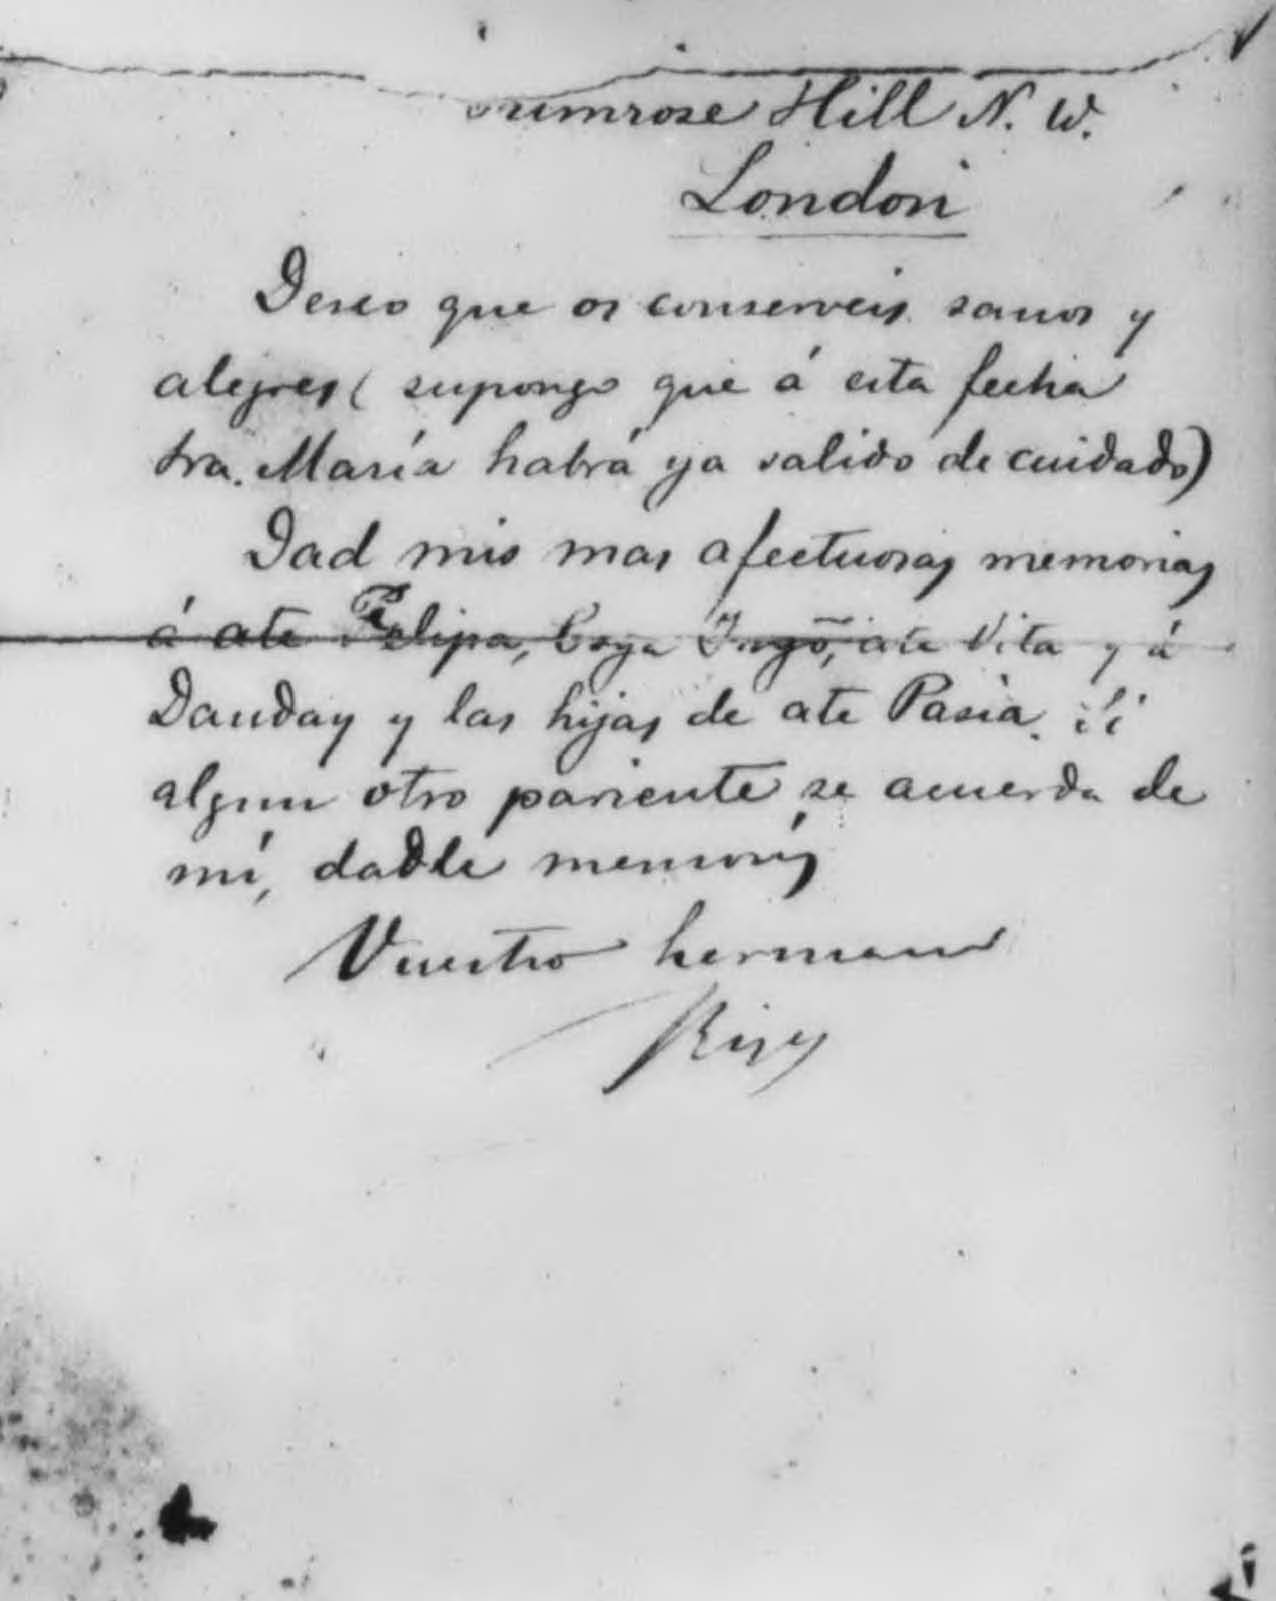 rimrose Hill N. W.
London
Deseo que os conserveis sanos y
alegres (supongo que á esta fecha
tra. María habrá ya salido de cuidado)
Dad mis mas afectuosas memorias
á ate Felipa, ate Vita y á
Dandoy y las hijas de ate Pasia. Si
algun otro pariente se acuerda de
mí, dadle memorias
Vuestro hermano